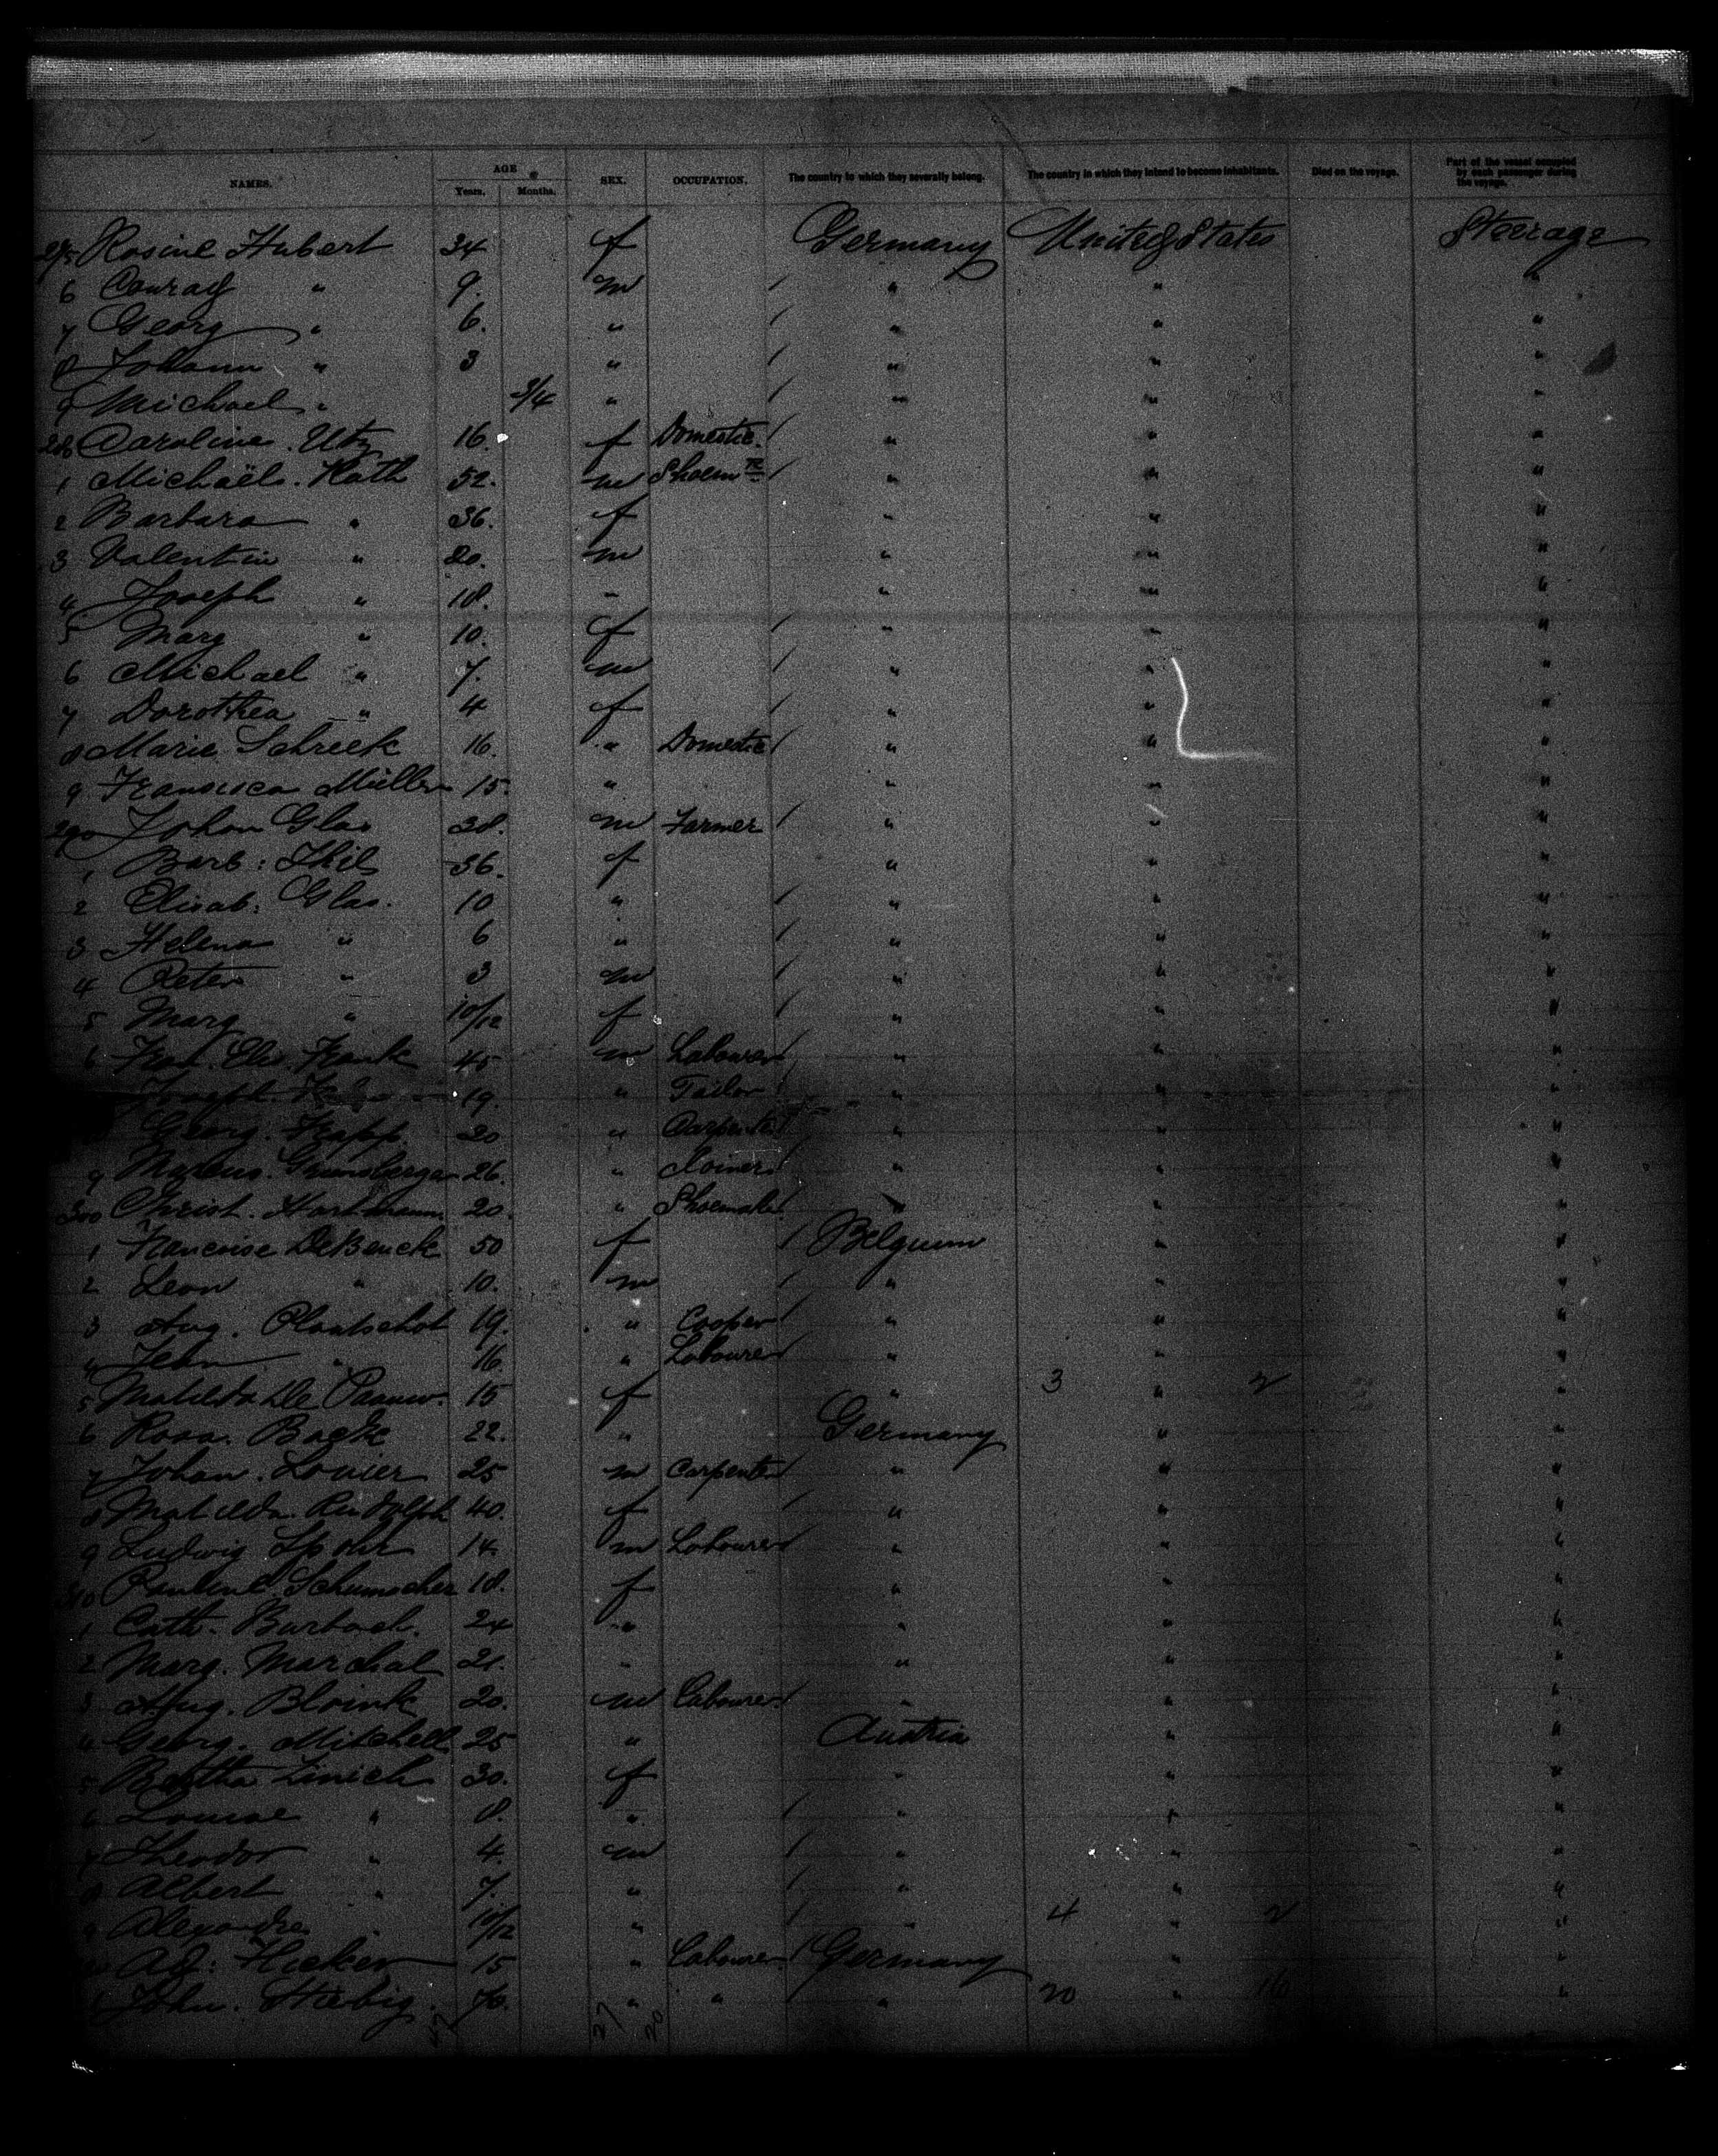 NAMES. AGE Years. Months. SEX. OCCUPATION. The country to which they severally belong. The country in which they intend to become inhabitants. Died on the voyage. Part of the vessel occupied by each passenger during the voyage.
275 Rosine Hubert 34 f Germany United States Steerage
6 Conrad " 9. m " " "
7 Georg " 6. " " " "
8 Johann " 3 " " " "
9 Michael " 3/4 " " " "
280 Caroline Utz 16. f Domestic " " "
1 Michaël Rath 52. m " " "
2 Barbara " 36. f " " "
3 Valentin " 20. m " " "
4 Joseph " 18. " " " "
5 Marg " 10. f " " "
6 Michael " 7. m " " "
7 Dorothea " 4 f " " "
8 Marie Schreck 16. " Domestic " " "
9 Francisca Müller 15 " " " "
290 Johan Glas 38. m Farmer " " "
1 Barb: Thil 36. f " " "
2 Elisab: Glas. 10 " " " "
3 Helena " 6 " " " "
4 Peter " 3 m " " "
5 Marg " 10/12 f " " "
6 Frank 45 m Labourer " " "
Joseph 19. " Tailor " " "
Georg. Trapp 20 " Carpenter " " "
9 26. " Joiner " " "
300 Christ. Hartmann. 20. " Shoemaker " " "
1 Francoise DeBenck 50 f Belgium " "
2 Leon " 10. m " " "
3 Aug. Plaatschot 19. " Cooper " " "
4 Jean " 16. " Labourer " " "
5 Matilda De Paauw. 15 f " 3 " 2 "
6 Rosa. Back 22. " Germany " "
7 Johan. Louier 25 m Carpenter " " "
8 Matilda. Rudolph 40. f " " "
9 Ludwig Spohr 14. m Labourer " " "
310 Pauline Schumacher 18. f " " "
1 Cath. Burbach. 24 " " " "
2 Marg. Marchal 21. " " " "
3 Aug. Bloink 20. m Labourer " " "
4 Georg. Mitchell 25 " Austria " "
5 Bertha Linich 30. f " " "
6 Louise " 8. " " " "
7 Theodor " 4. m " " "
8 Albert " 7. " " " "
9 Alexandre " 10/12 " " 4 " 2 "
Ad: Hecker 15 " Labourer Germany " "
1 John. " " " 20 " 16 "
27 20